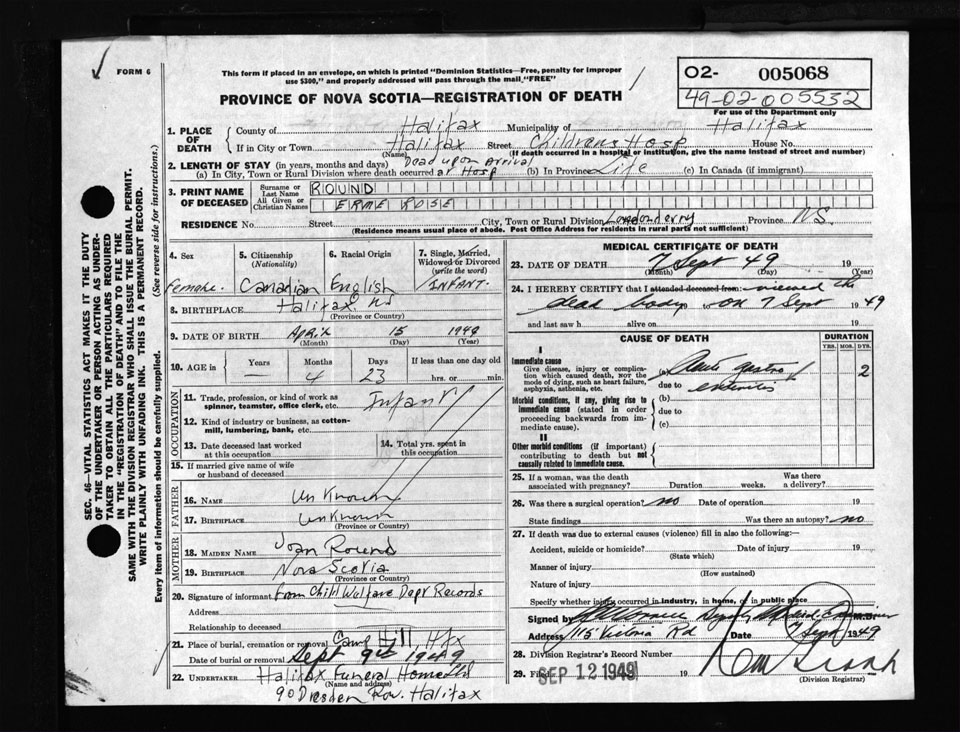 FORM 6
This form if placed in an envelope, on which is printed "Dominion Statistics—Free, penalty for improper
use $300," and properly addressed will pass through the mail "FREE"
PROVINCE OF NOVA SCOTIA—REGISTRATION OF DEATH
02- 005068
49-02-005532
For use of the Department only
SEC. 46—VITAL STATISTICS ACT MAKES IT THE DUTY
OF THE UNDERTAKER OR PERSON ACTING AS UNDER-
TAKER TO OBTAIN ALL THE PARTICULARS REQUIRED
IN THE "REGISTRATION OF DEATH" AND TO FILE THE
SAME WITH THE DIVISION REGISTRAR WHO SHALL ISSUE THE BURIAL PERMIT.
WRITE PLAINLY WITH UNFADING INK. THIS IS A PERMANENT RECORD.
Every item of information should be carefully supplied. (See reverse side for instructions.)
1. PLACE OF DEATH
County of Halifax Municipality of Halifax
If in City or Town Halifax Street Childrens Hosp House No.
(Name) (If death occurred in a hospital or institution, give the name instead of street and number)
2. LENGTH OF STAY (in years, months and days) Dead upon arrival
(a) In City, Town or Rural Division where death occurred at Hosp (b) In Province Life (c) In Canada (if immigrant)
3. PRINT NAME OF DECEASED
Surname or Last Name ROUND
All Given or Christian Names ERME ROSE
RESIDENCE No. Street City, Town or Rural Division Londonderry Province NS.
(Residence means usual place of abode. Post Office Address for residents in rural parts not sufficient)
4. Sex Female
5. Citizenship (Nationality) Canadian
6. Racial Origin English
7. Single, Married, Widowed or Divorced (write the word) INFANT
8. BIRTHPLACE Halifax NS
(Province or Country)
9. DATE OF BIRTH April 15 1949
(Month) (Day) (Year)
10. AGE in Years Months Days If less than one day old
— 4 23 hrs. or min.
OCCUPATION
11. Trade, profession, or kind of work as
spinner, teamster, office clerk, etc. Infant
12. Kind of industry or business, as cotton-
mill, lumbering, bank, etc.
13. Date deceased last worked
at this occupation
14. Total yrs. spent in
this occupation
15. If married give name of wife
or husband of deceased
FATHER
16. NAME Unknown
17. BIRTHPLACE Unknown
(Province or Country)
MOTHER
18. MAIDEN NAME Joan Round
19. BIRTHPLACE Nova Scotia
(Province or Country)
20. Signature of informant from Child Welfare Dept Records
Address
Relationship to deceased
21. Place of burial, cremation or removal Camp Hill Hfx
Date of burial or removal Sept 9th 1949
22. UNDERTAKER Halifax Funeral Home
(Name and address)
90 Dresden Row. Halifax
MEDICAL CERTIFICATE OF DEATH
23. DATE OF DEATH 7 Sept 49 19
(Month) (Day)
24. I HEREBY CERTIFY that I attended deceased from: viewed the
dead body to on 7 Sept 1949
and last saw h alive on 19
CAUSE OF DEATH
DURATION
YRS. MOS. DYS.
I
Immediate cause
Give disease, injury or complica-
tion which caused death, NOT the
mode of dying, such as heart failure,
asphyxia, asthenia, etc.
(a) Acute gastro 2
due to enteritis
Morbid conditions, if any, giving rise to
immediate cause (stated in order
proceeding backwards from im-
mediate cause).
(b)
due to
(c)
II
Other morbid conditions (if important)
contributing to death but not
causally related to immediate cause.
25. If a woman, was the death
associated with pregnancy? Duration weeks. Was there
a delivery?
26. Was there a surgical operation? no Date of operation 19
State findings Was there an autopsy? no
27. If death was due to external causes (violence) fill in also the following:—
Accident, suicide or homicide? Date of injury 19
(State which)
Manner of injury
(How sustained)
Nature of injury
Specify whether injury occurred in industry, in home, or in public place
Signed by Medical Examiner M.D.
Address 115 Victoria Rd Date 7 Sept 1949
28. Division Registrar's Record Number
29. Filed SEP 12 1949 19
(Division Registrar)